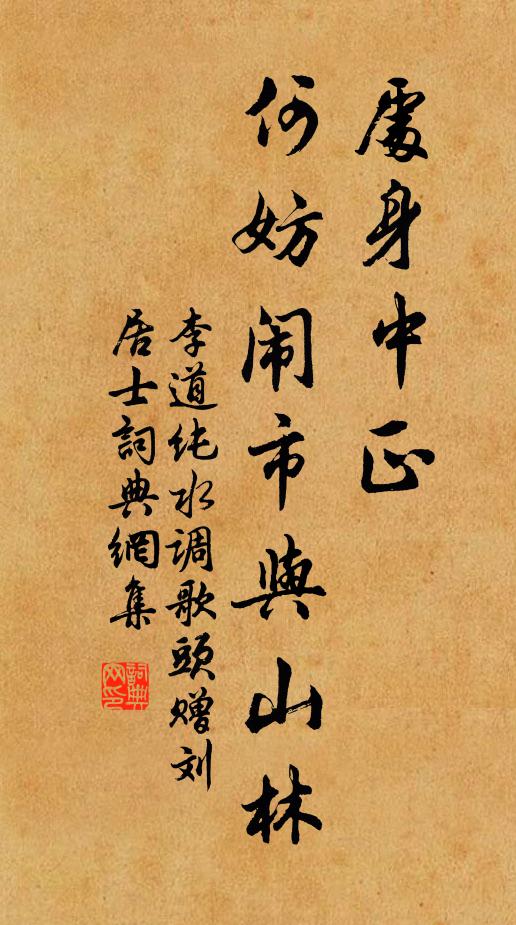 處身中正
何妨闹市與山林
李道纯水调歌頭赠刘
居士詞典網集
詞典网印